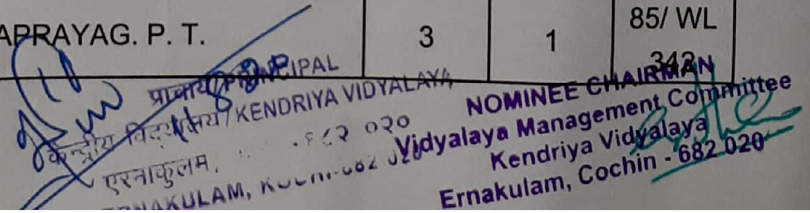 APRAYAG. P. T. 3 1 85/ WL
342
प्राचार्य/PRINCIPAL
केन्द्रीय विद्यालय/KENDRIYA VIDYALAYA
एरनाकुलम. 682 020
ERNAKULAM, KOCHI-682 020
NOMINEE CHAIRMAN
Vidyalaya Management Committee
Kendriya Vidyalaya
Ernakulam, Cochin - 682 020